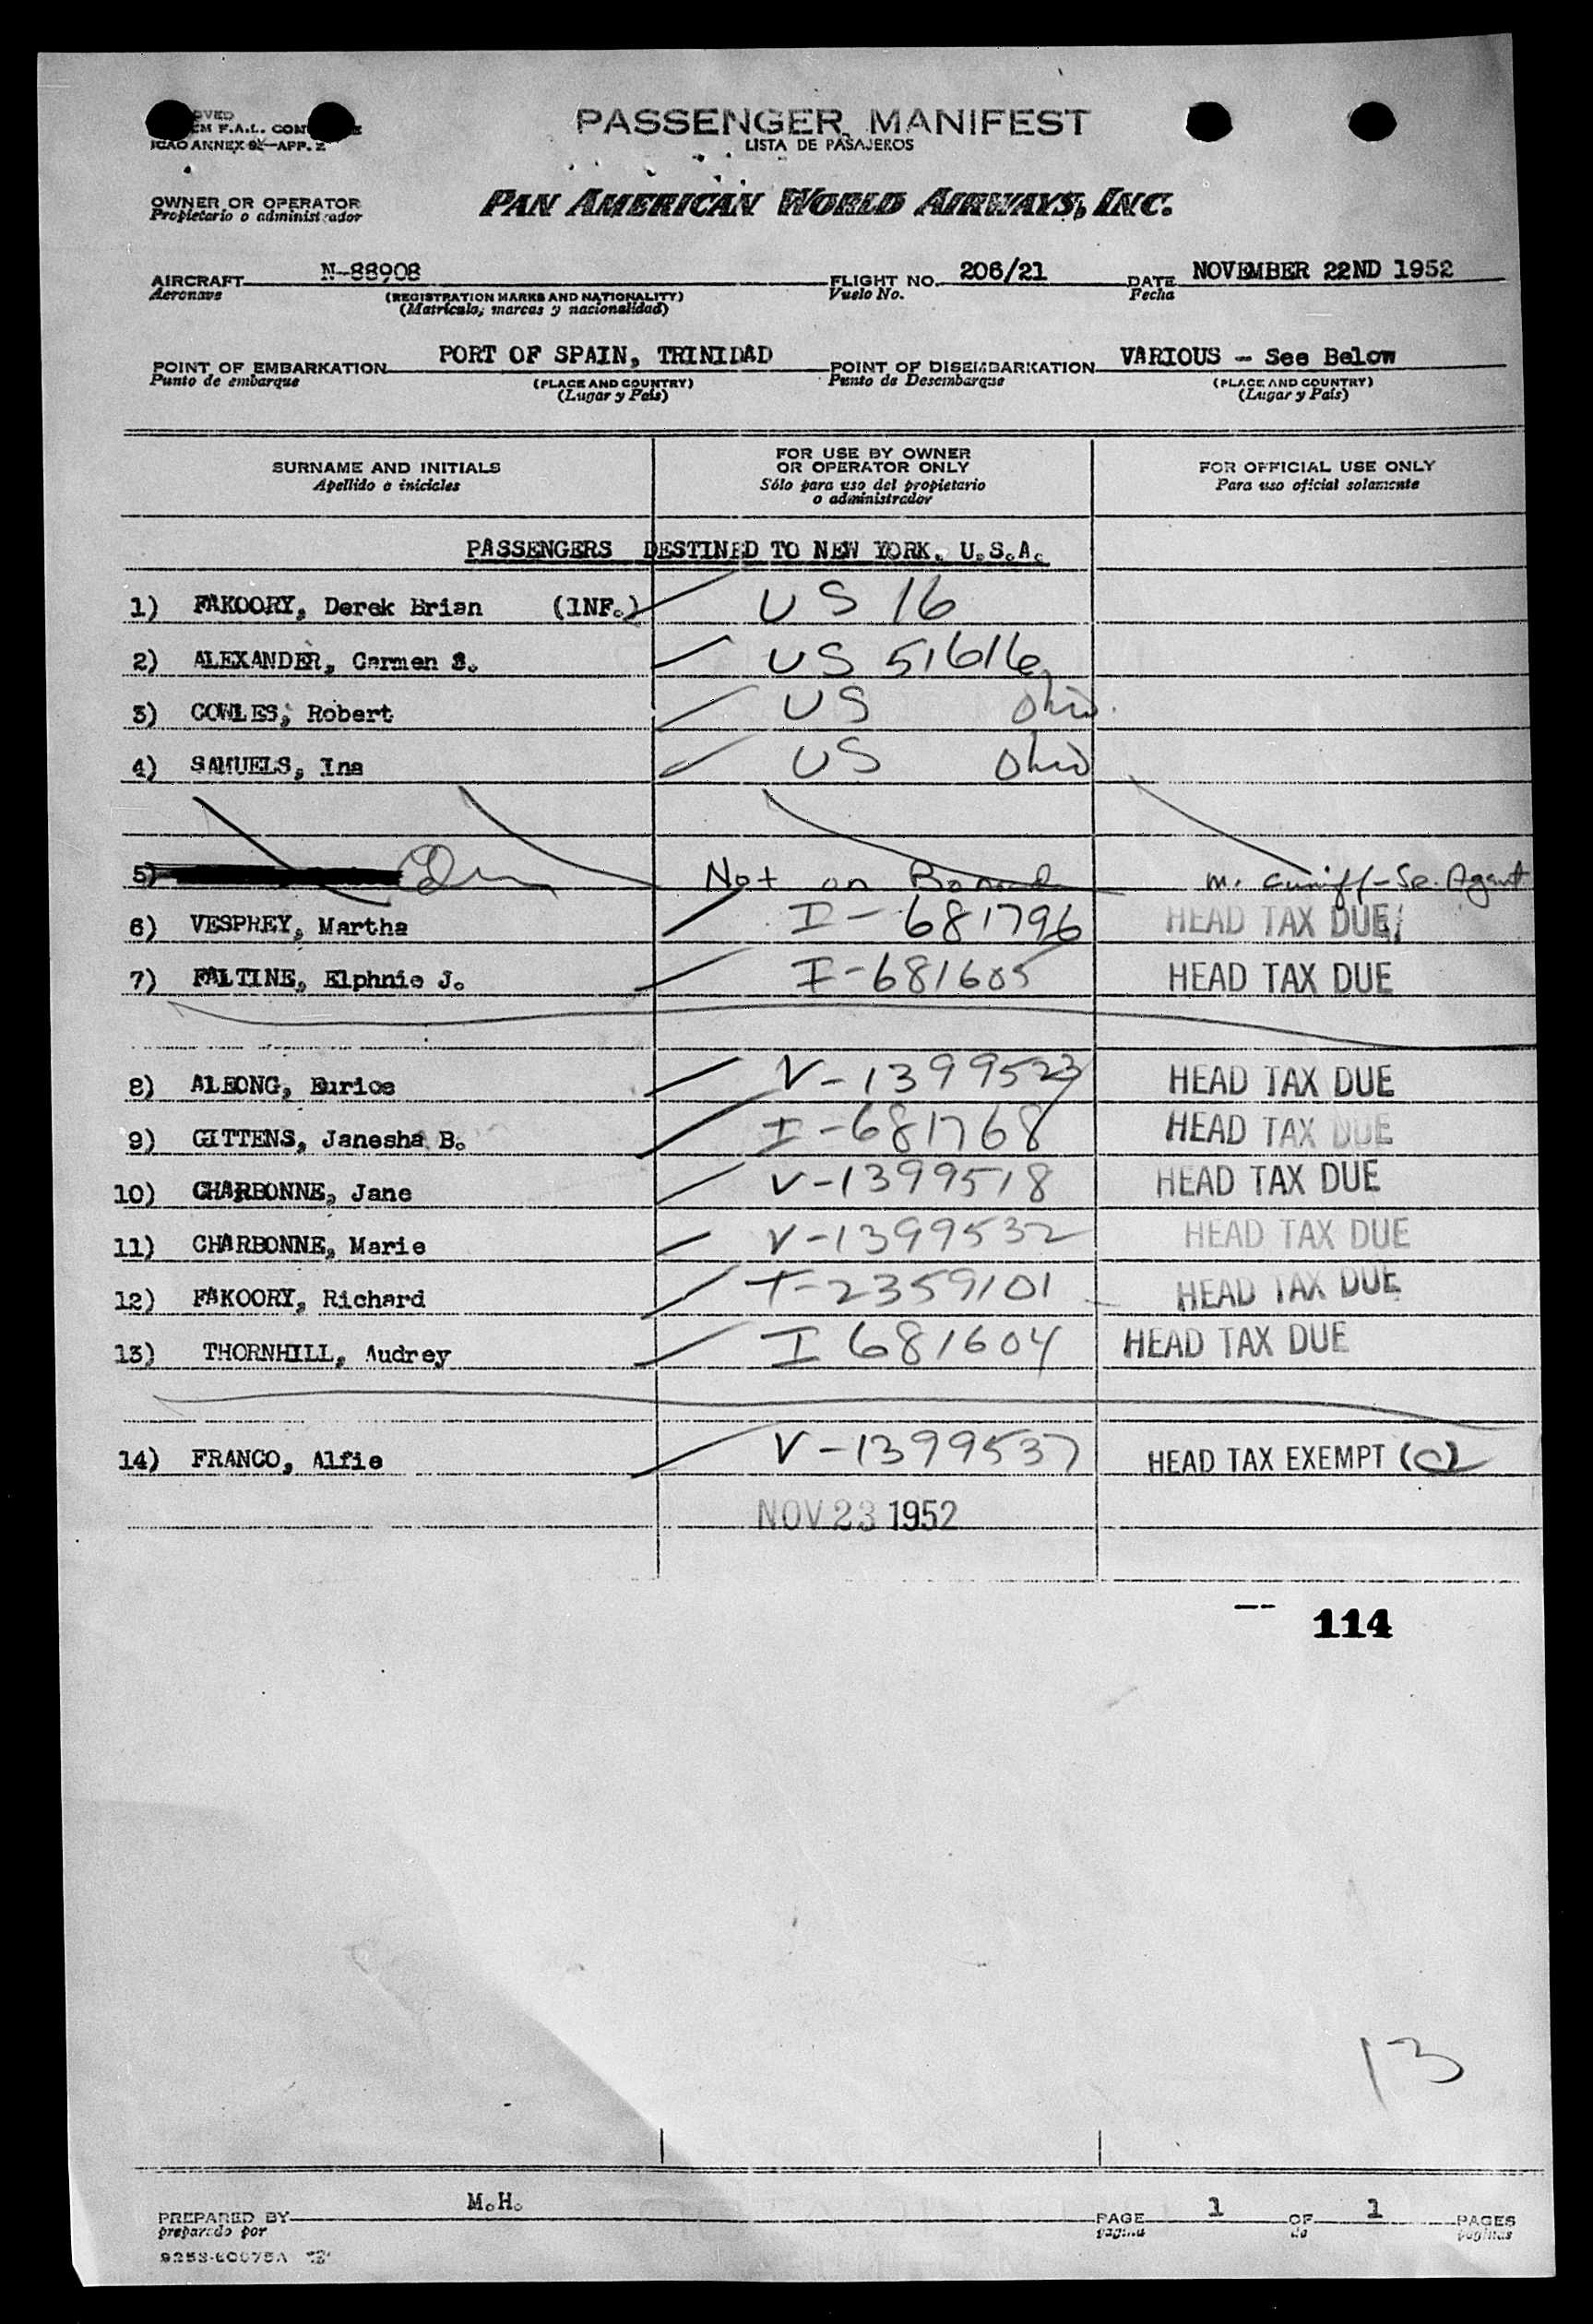 PASSENGER MANIFEST
LISTA DE PASAJEROS
OVED
EM F.A.L. CON
ICAO ANNEX 9—APP. 2
OWNER OR OPERATOR
Propietario o administrador
PAN AMERICAN WORLD AIRWAYS, INC.
AIRCRAFT N-88908 FLIGHT NO. 206/21 DATE NOVEMBER 22ND 1952
Aeronave (REGISTRATION MARKS AND NATIONALITY) Vuelo No. Fecha
(Matrícula, marcas y nacionalidad)
POINT OF EMBARKATION PORT OF SPAIN, TRINIDAD POINT OF DISEMBARKATION VARIOUS - See Below
Punto de embarque (PLACE AND COUNTRY) Punto de Desembarque (PLACE AND COUNTRY)
(Lugar y País) (Lugar y País)
SURNAME AND INITIALS
Apellido e iniciales
FOR USE BY OWNER
OR OPERATOR ONLY
Sólo para uso del propietario
o administrador
FOR OFFICIAL USE ONLY
Para uso oficial solamente
PASSENGERS DESTINED TO NEW YORK, U.S.A.
1) FAKOORY, Derek Brian (INF.) US 16
2) ALEXANDER, Carmen S. US 51616
3) COWLES, Robert US Ohio
4) SAMUELS, Ina US Ohio
5) Not on Board M. Cuniff - Se. Agent
6) VESPREY, Martha I-681796 HEAD TAX DUE
7) FALTINE, Elphnie J. I-681605 HEAD TAX DUE
8) ALEONG, Eurice V-1399523 HEAD TAX DUE
9) GITTENS, Janesha B. I-681768 HEAD TAX DUE
10) CHARBONNE, Jane V-1399518 HEAD TAX DUE
11) CHARBONNE, Marie V-1399532 HEAD TAX DUE
12) FAKOORY, Richard T-2359101 HEAD TAX DUE
13) THORNHILL, Audrey I 681604 HEAD TAX DUE
14) FRANCO, Alfie V-1399537 HEAD TAX EXEMPT (C)
NOV 23 1952
114
13
PREPARED BY M.H. PAGE 1 OF 1 PAGES
preparado por página de páginas